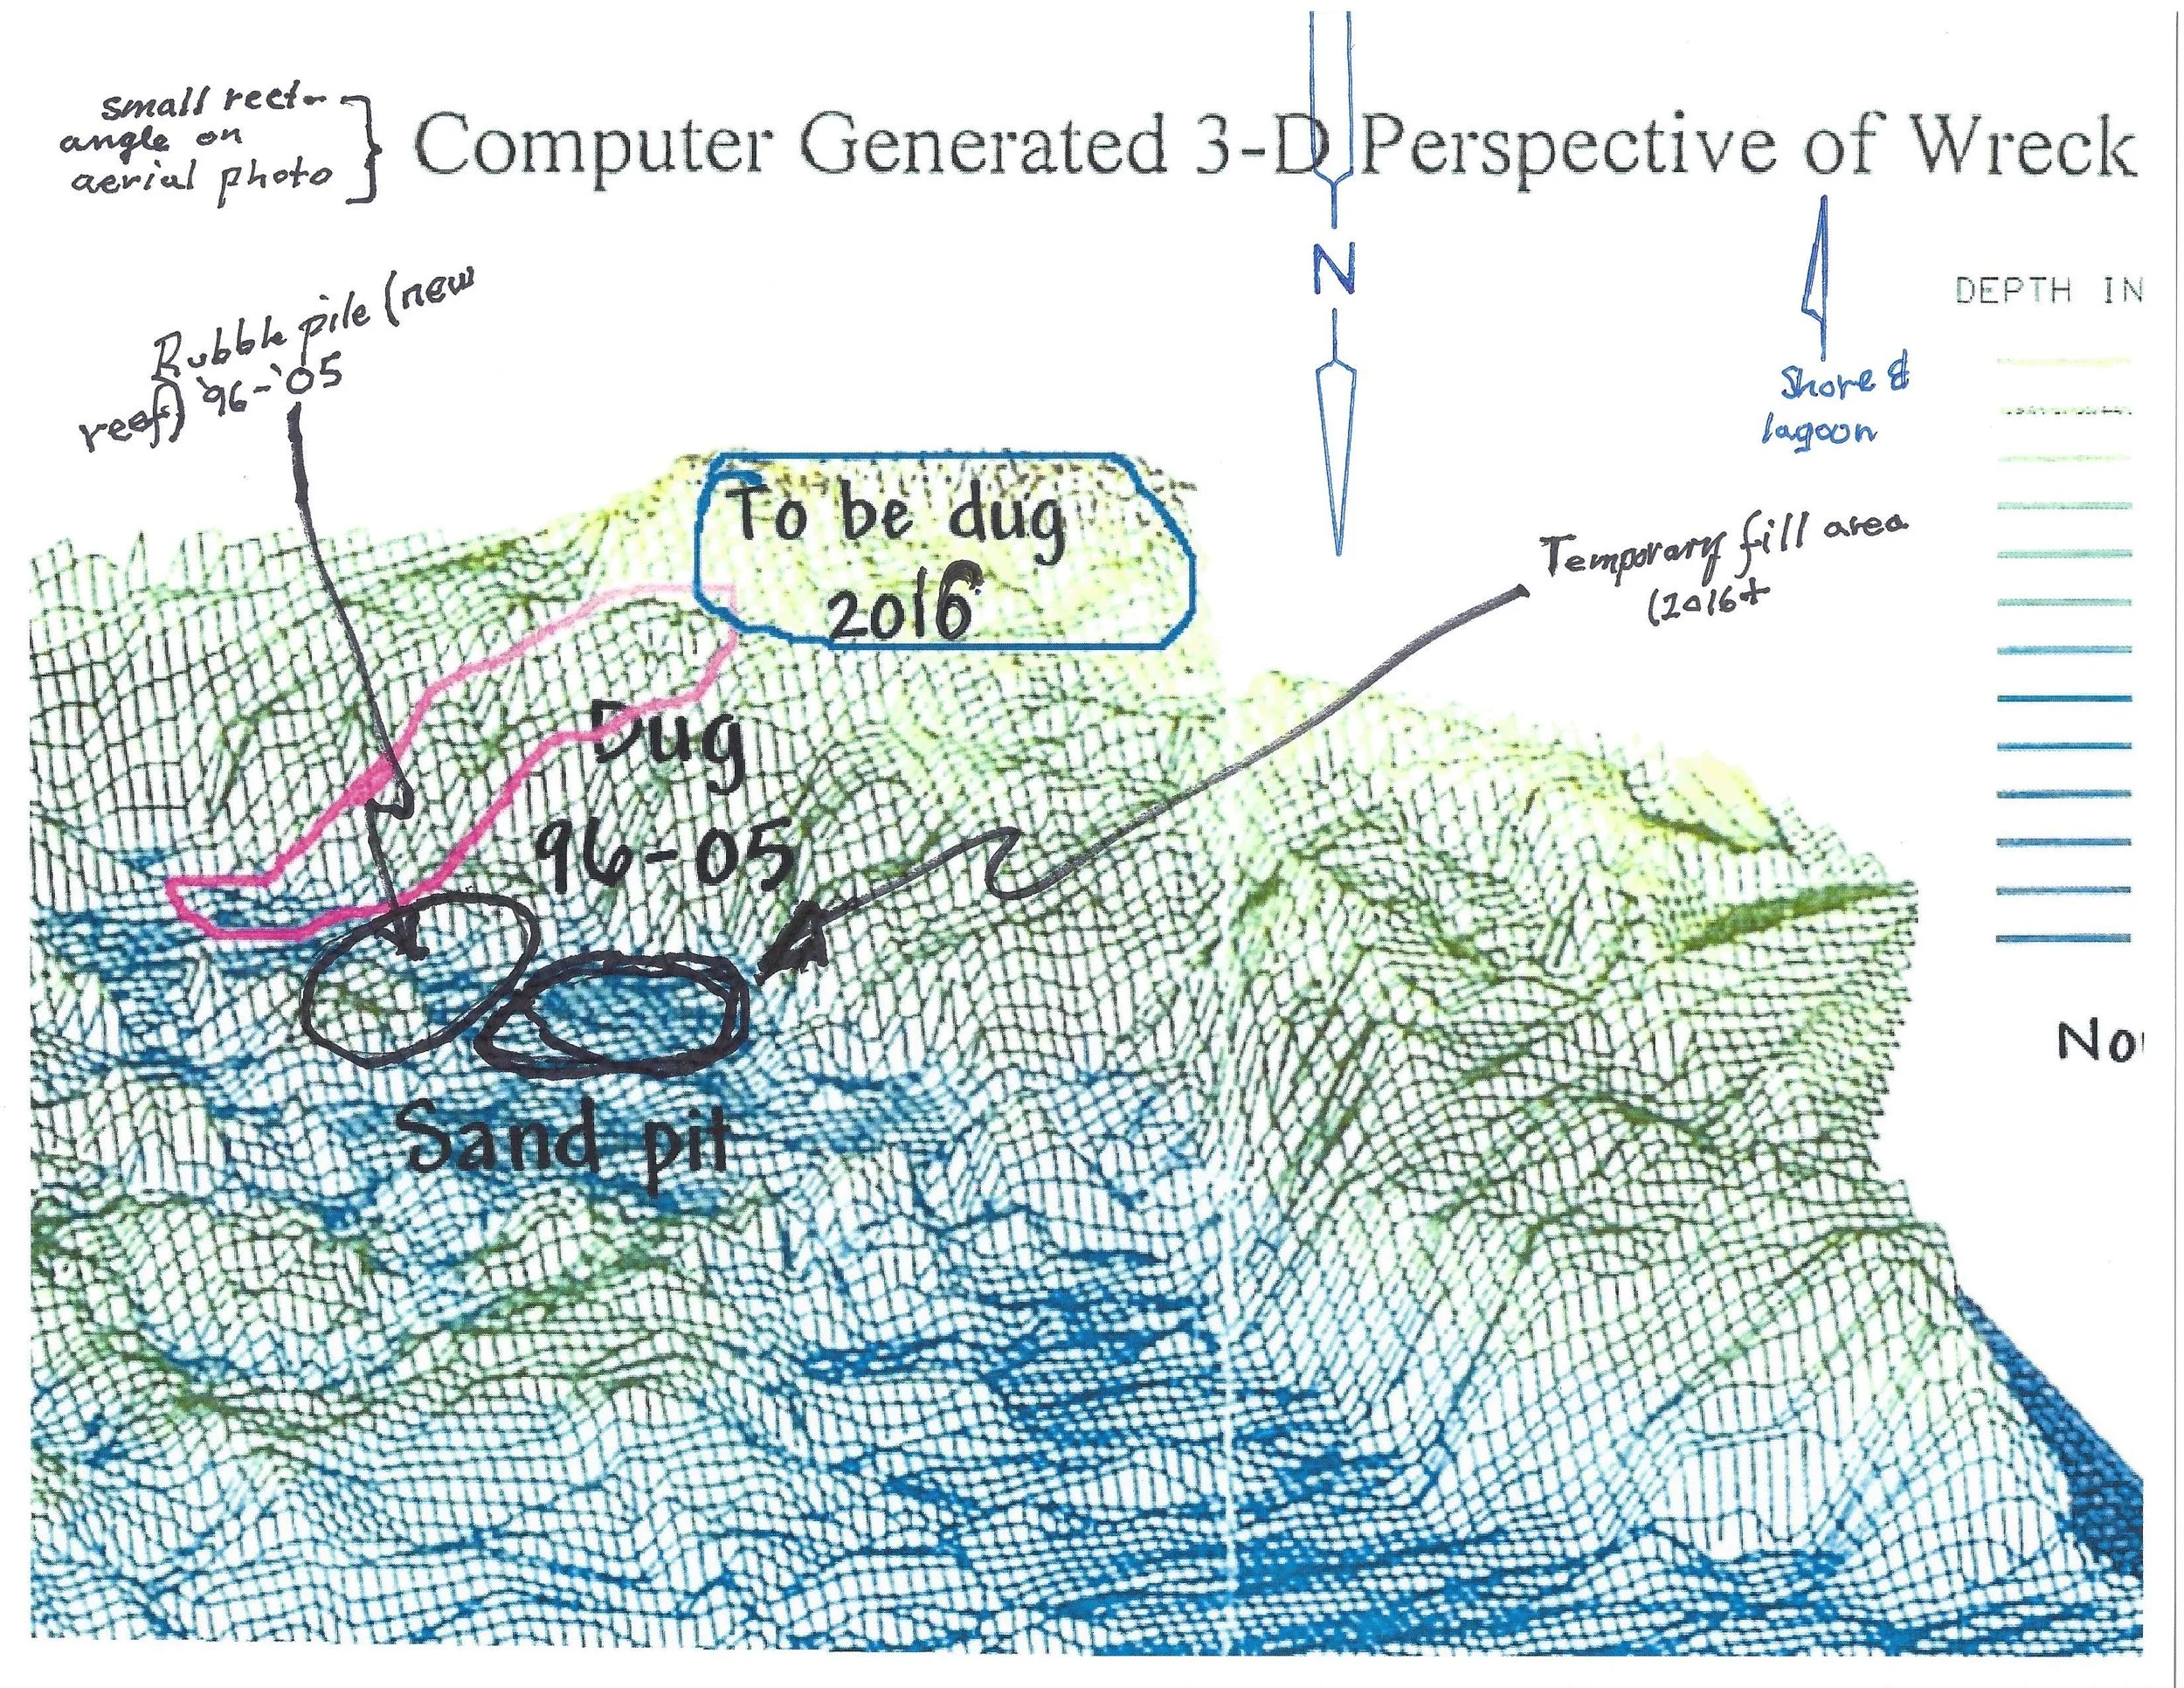 small rect-
angle on
aerial photo
Computer Generated 3-D Perspective of Wreck
N
DEPTH IN
Shore &
lagoon
Rubble pile (new
reef) '96-'05
To be dug
2016
Temporary fill area
(2016+
Dug
96-05
Sand pit
No